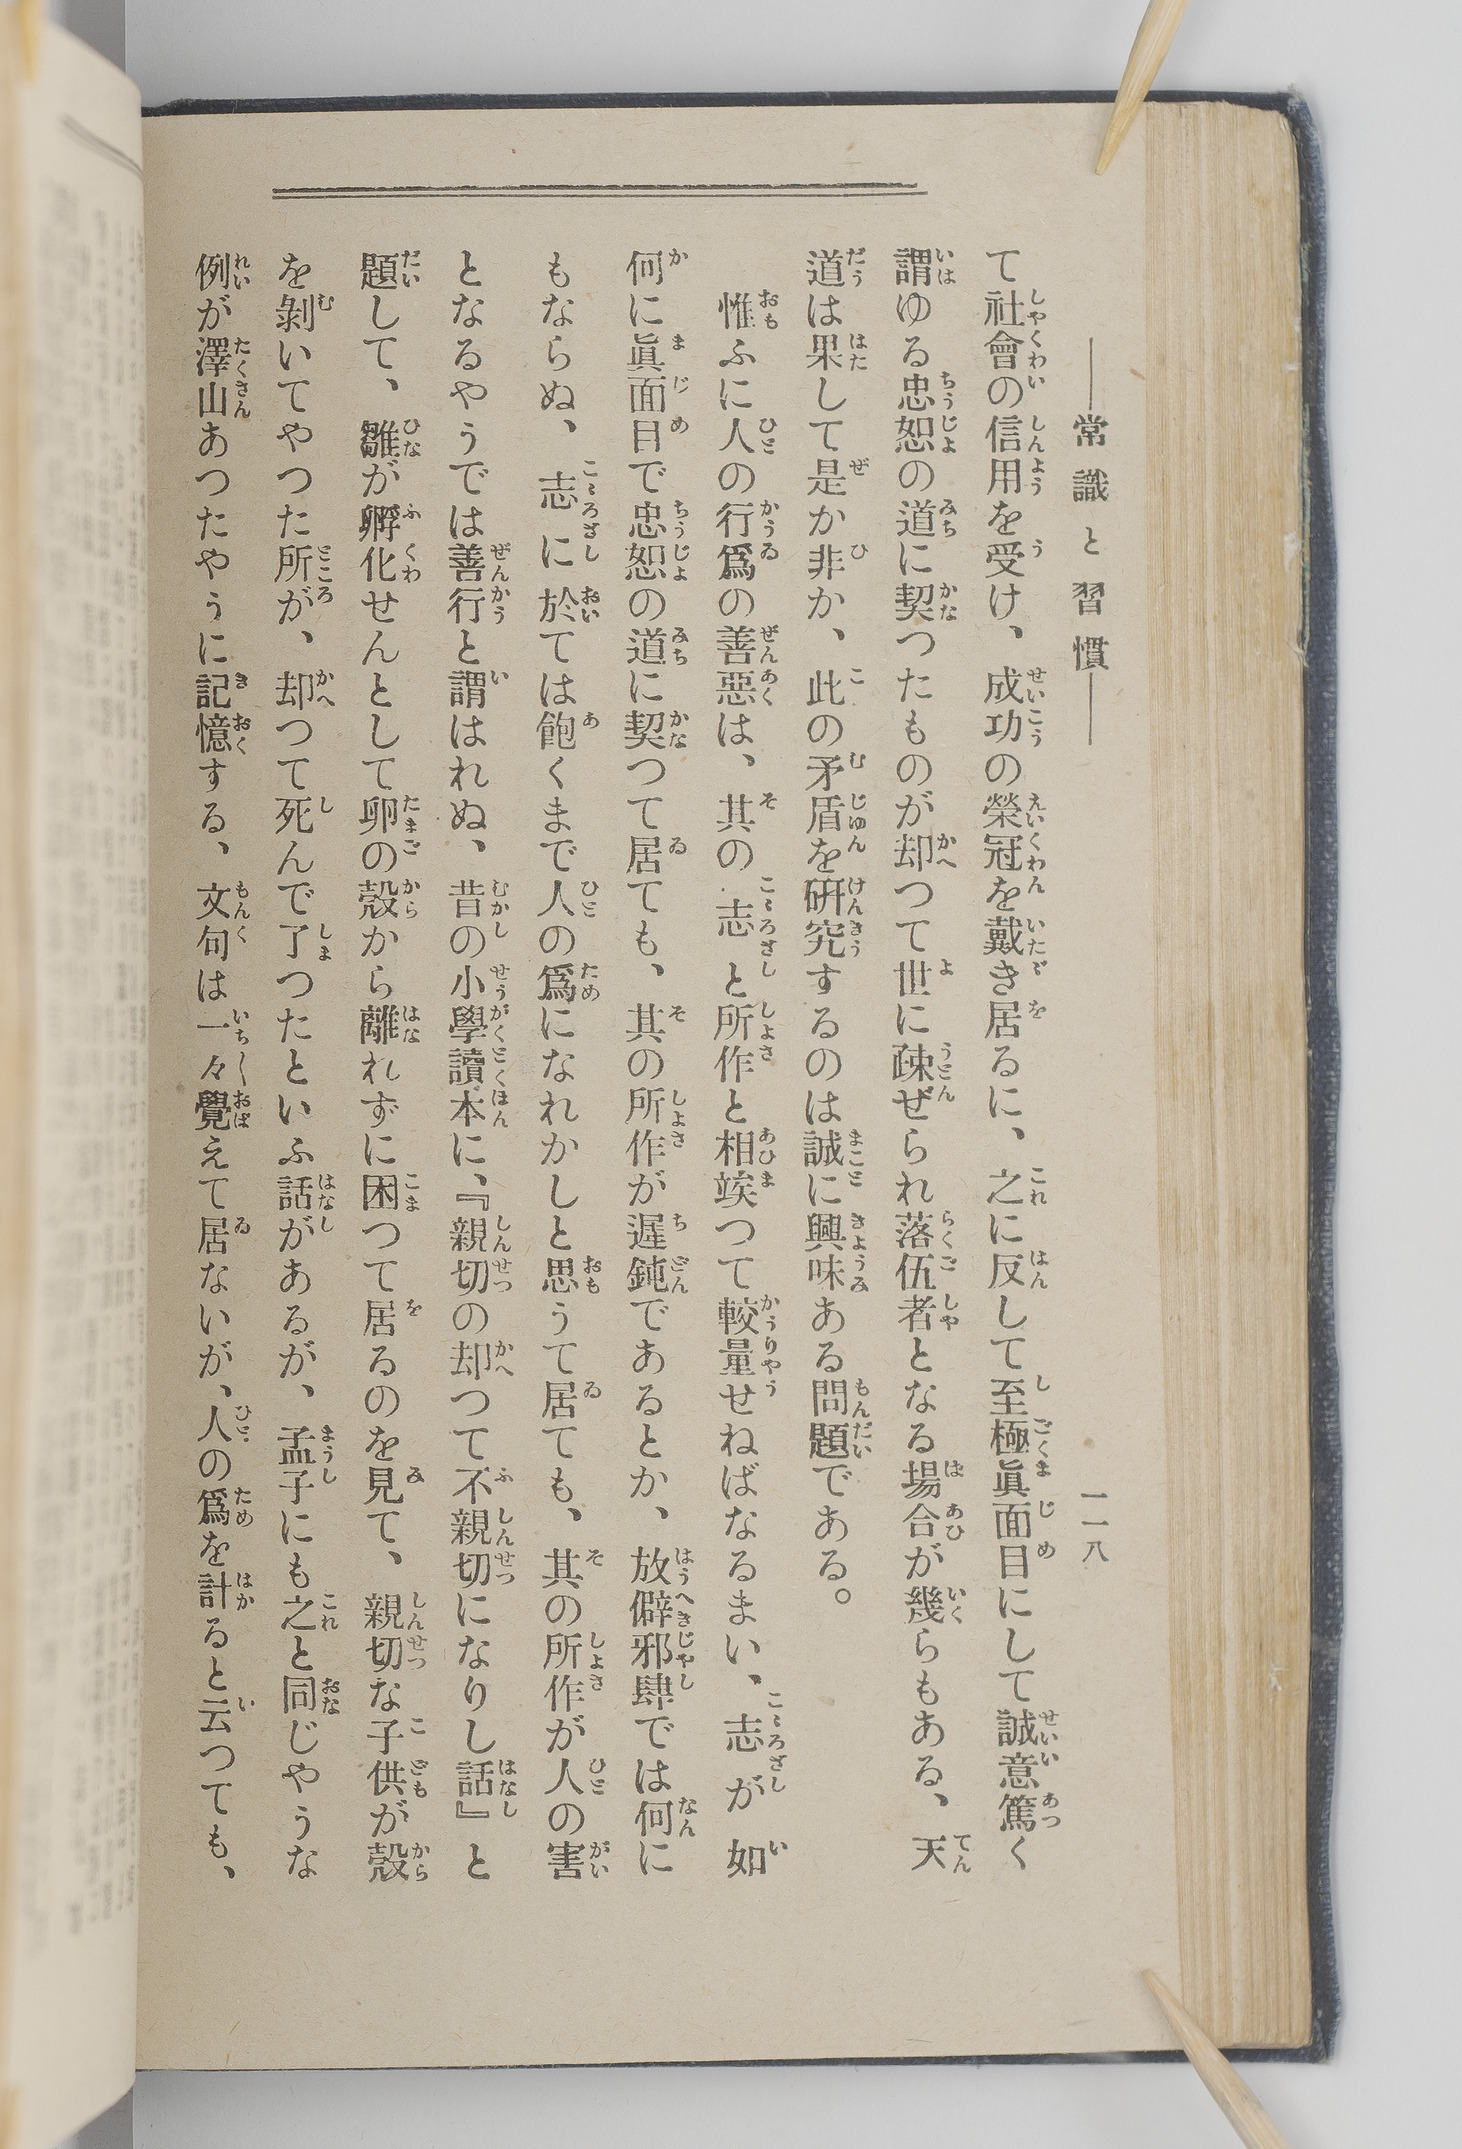 ――常識と習慣――
一一八
て社會の信用を受け、成功の榮冠を戴き居るに、之に反して至極眞面目にして誠意篤く
謂ゆる忠恕の道に契つたものが却つて世に疎ぜられ落伍者となる場合が幾らもある、天
道は果して是か非か、此の矛盾を研究するのは誠に興味ある問題である。
惟ふに人の行爲の善惡は、其の志と所作と相竢つて較量せねばなるまい、志が如
何に眞面目で忠恕の道に契つて居ても、其の所作が遲鈍であるとか、放僻邪肆では何に
もならぬ、志に於ては飽くまで人の爲になれかしと思うて居ても、其の所作が人の害
となるやうでは善行と謂はれぬ、昔の小學讀本に、『親切の却つて不親切になりし話』と
題して、雛が孵化せんとして卵の殼から離れずに困つて居るのを見て、親切な子供が殼
を剝いてやつた所が、却つて死んで了つたといふ話があるが、孟子にも之と同じやうな
例が澤山あつたやうに記憶する、文句は一々覺えて居ないが、人の爲を計ると云つても、